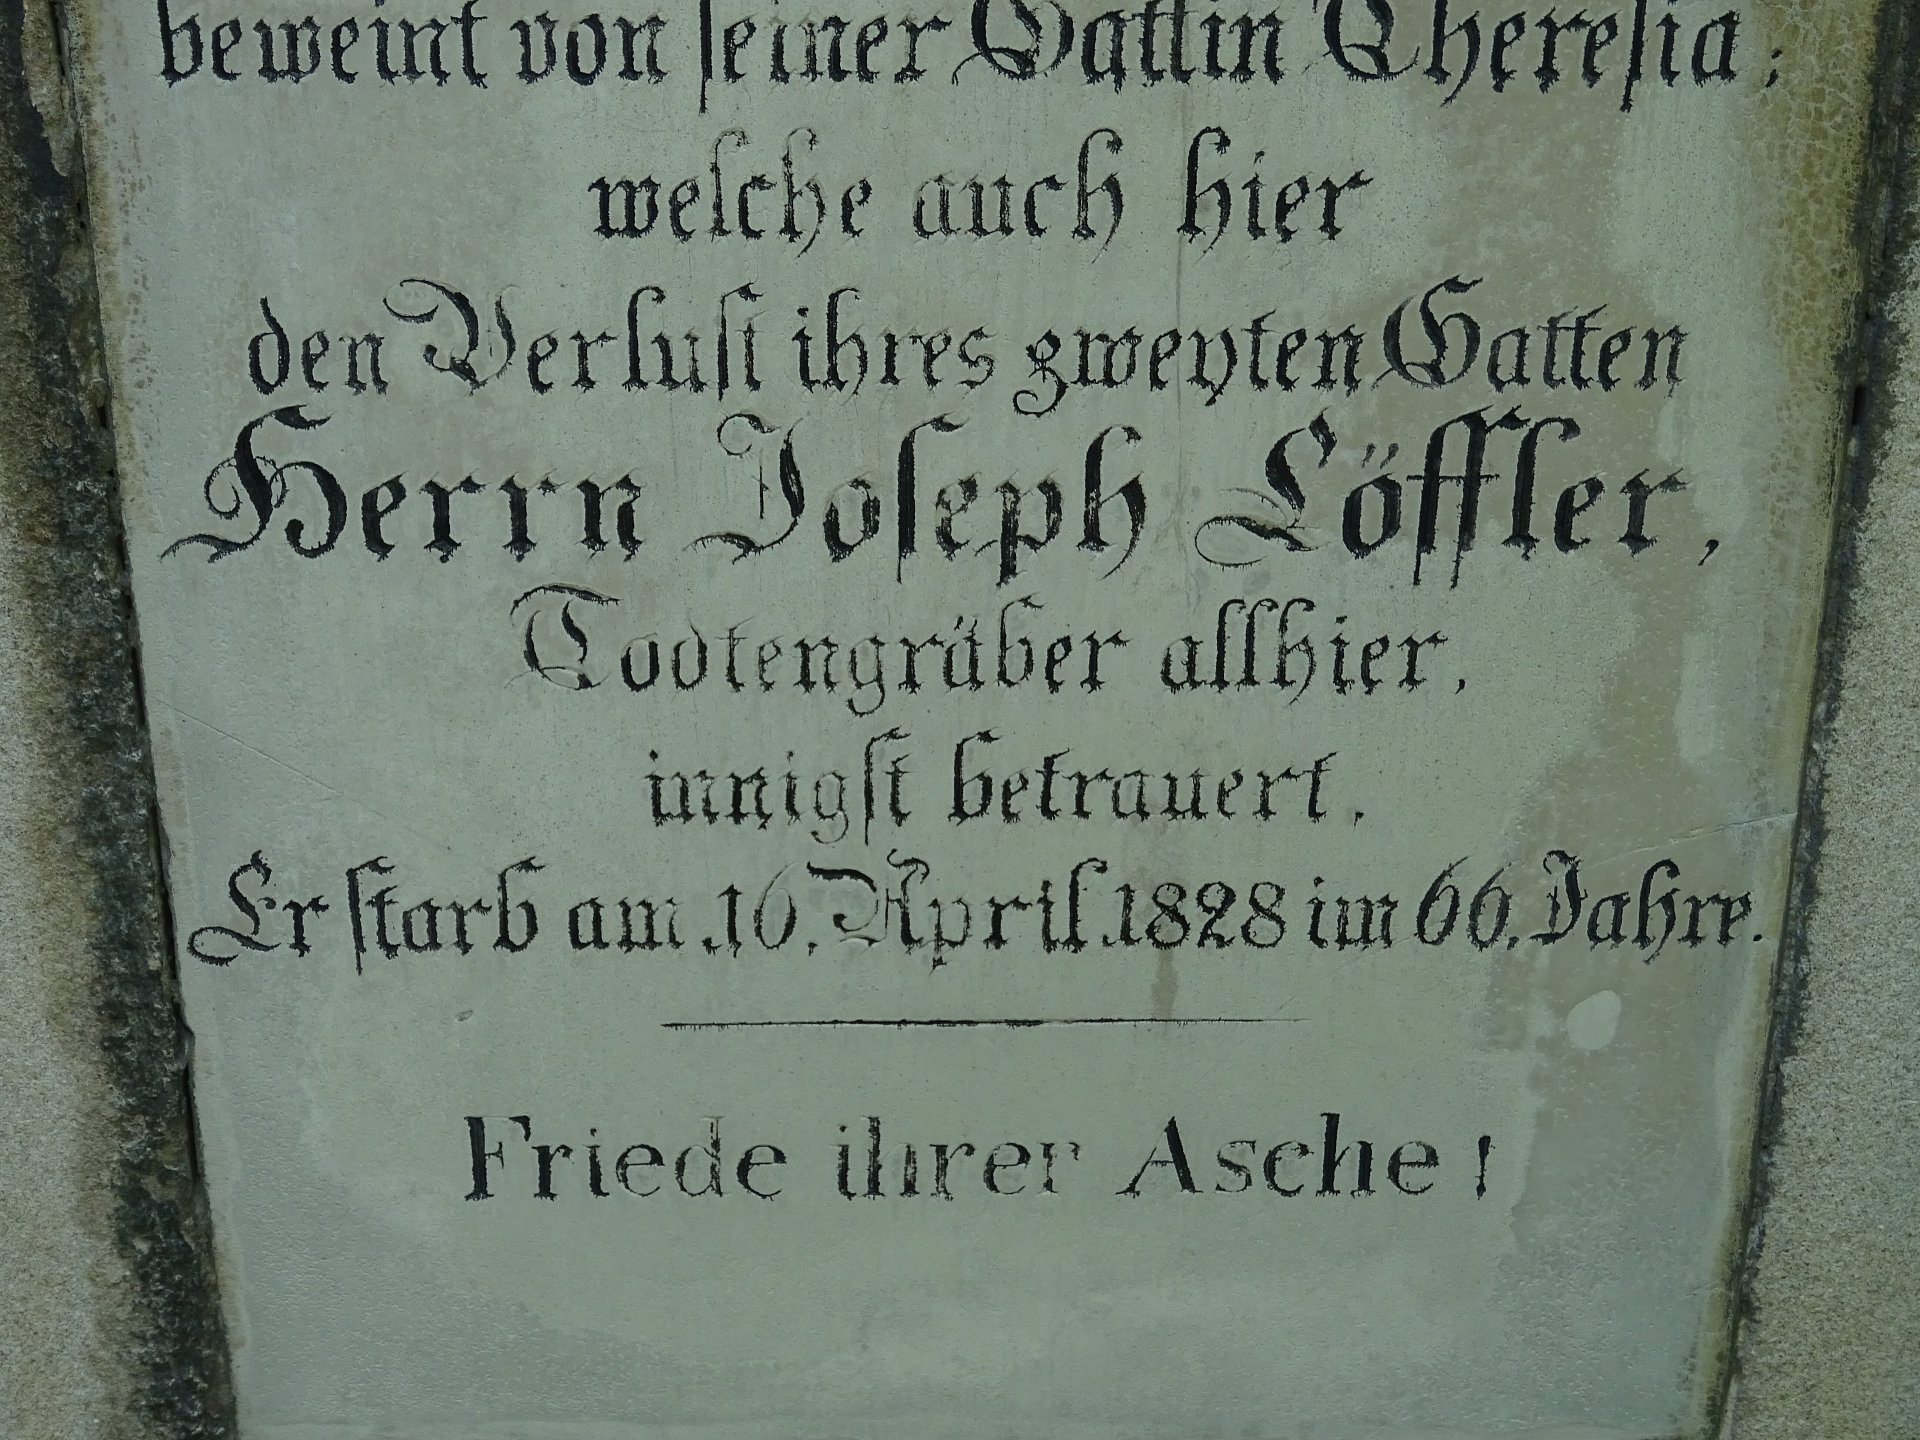 beweint von seiner Gattin Theresia;
welche auch hier
den Verlust ihres zweyten Gatten
Herrn Joseph Löffler,
Todtengräber allhier,
innigst betrauert.
Er starb am 16. April 1828 im 66. Jahre.
Friede ihrer Asche!